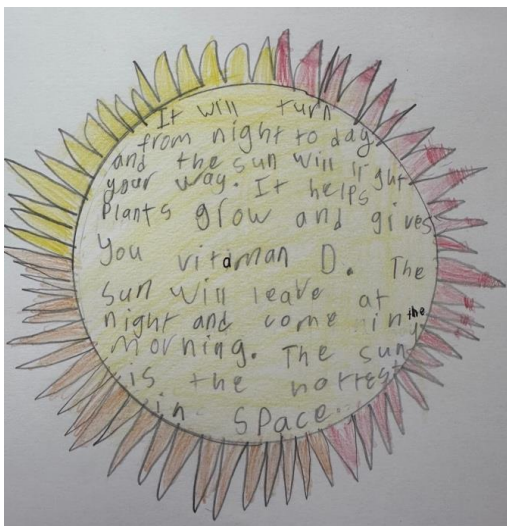 It will turn
from night to day
and the sun will light
your way. It helps
Plants grow and gives
you vitaman D. The
sun will leave at
night and come in the
morning. The sun
is the hottest
in space.